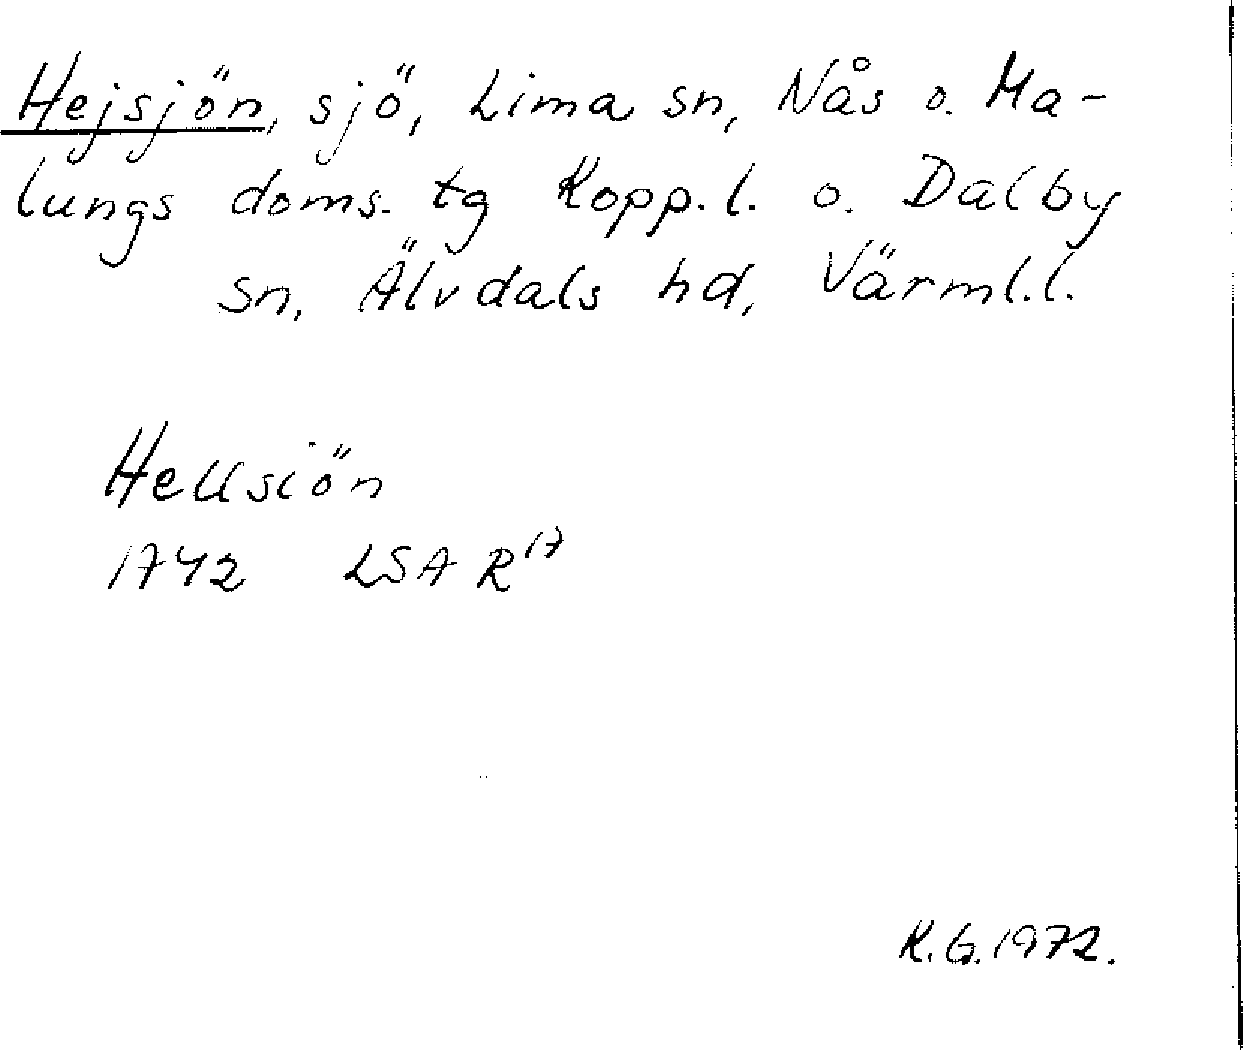 Hejsjön, sjö, Lima sn, Nås o. Ma-
lungs doms. tg Kopp. l. o. Dalby
sn, Älvdals hd, Värml. l.
Hellsiön
1742 LSA R17
K.G. 1972.